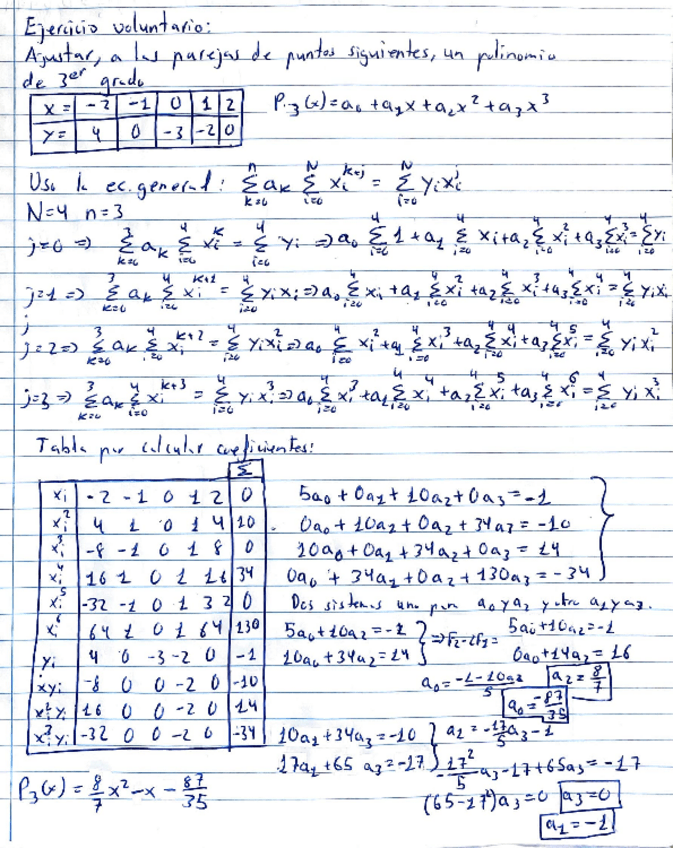 Ejercicio voluntario:
Ajustar, a las parejas de puntos siguientes, un polinomio
de 3er grado
x= -2 -1 0 1 2
y= 4 0 -3 -2 0
P3(x)=a₀+a₁x+a₂x²+a₃x³
Uso la ec. general: Σ(k=0,n) aₖ Σ(i=0,N) xᵢ^(k+j) = Σ(i=0,N) yᵢxᵢ^j
N=4 n=3
j=0 => Σ(k=0,3) aₖ Σ(i=0,4) xᵢ^k = Σ(i=0,4) yᵢ => a₀ Σ(i=0,4) 1 + a₁ Σ(i=0,4) xᵢ + a₂ Σ(i=0,4) xᵢ² + a₃ Σ(i=0,4) xᵢ³ = Σ(i=0,4) yᵢ
j=1 => Σ(k=0,3) aₖ Σ(i=0,4) xᵢ^(k+1) = Σ(i=0,4) yᵢxᵢ => a₀ Σ(i=0,4) xᵢ + a₁ Σ(i=0,4) xᵢ² + a₂ Σ(i=0,4) xᵢ³ + a₃ Σ(i=0,4) xᵢ⁴ = Σ(i=0,4) yᵢxᵢ
j=2 => Σ(k=0,3) aₖ Σ(i=0,4) xᵢ^(k+2) = Σ(i=0,4) yᵢxᵢ² => a₀ Σ(i=0,4) xᵢ² + a₁ Σ(i=0,4) xᵢ³ + a₂ Σ(i=0,4) xᵢ⁴ + a₃ Σ(i=0,4) xᵢ⁵ = Σ(i=0,4) yᵢxᵢ²
j=3 => Σ(k=0,3) aₖ Σ(i=0,4) xᵢ^(k+3) = Σ(i=0,4) yᵢxᵢ³ => a₀ Σ(i=0,4) xᵢ³ + a₁ Σ(i=0,4) xᵢ⁴ + a₂ Σ(i=0,4) xᵢ⁵ + a₃ Σ(i=0,4) xᵢ⁶ = Σ(i=0,4) yᵢxᵢ³
Tabla por calcular coeficientes:
Σ
xᵢ -2 -1 0 1 2 0
xᵢ² 4 1 0 1 4 10
xᵢ³ -8 -1 0 1 8 0
xᵢ⁴ 16 1 0 1 16 34
xᵢ⁵ -32 -1 0 1 32 0
xᵢ⁶ 64 1 0 1 64 130
yᵢ 4 0 -3 -2 0 -1
xyᵢ -8 0 0 -2 0 -10
xᵢ²yᵢ 16 0 0 -2 0 14
xᵢ³yᵢ -32 0 0 -2 0 -34
5a₀+0a₁+10a₂+0a₃=-1
0a₀+10a₂+0a₂+34a₃=-10
10a₀+0a₁+34a₂+0a₃=14
0a₀+34a₁+0a₂+130a₃=-34
Dos sistemas uno para a₀ y a₂ y otro a₁ y a₃.
5a₀+10a₂=-1
10a₀+34a₂=14
=> F₂-2F₁=
5a₀+10a₂=-1
0a₀+14a₂=16
a₀=(-1-10a₂)/5
a₂=8/7
a₀=-87/35
10a₁+34a₃=-10
17a₁+65a₃=-17
a₁=-17/5 a₃-1
-17²/5 a₃-17+65a₃=-17
(65-17²)a₃=0
a₃=0
a₁=-1
P₃(x)=8/7 x²-x-87/35